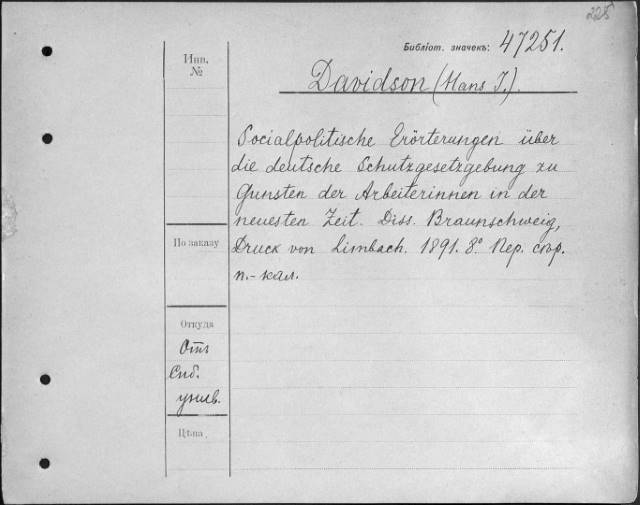 225
Библіот. значекъ: 47251.
Инв.
№
Davidson (Hans J.).
Socialpolitische Erörterungen über
die deutsche Schutzgesetzgebung zu
Gunsten der Arbeiterinnen in der
neuesten Zeit. Diss. Braunschweig,
Druck von Limbach. 1891. 8º Пер. стор.
п.-кал.
По заказу
Откуда
Отъ
Спб.
унив.
Цѣна